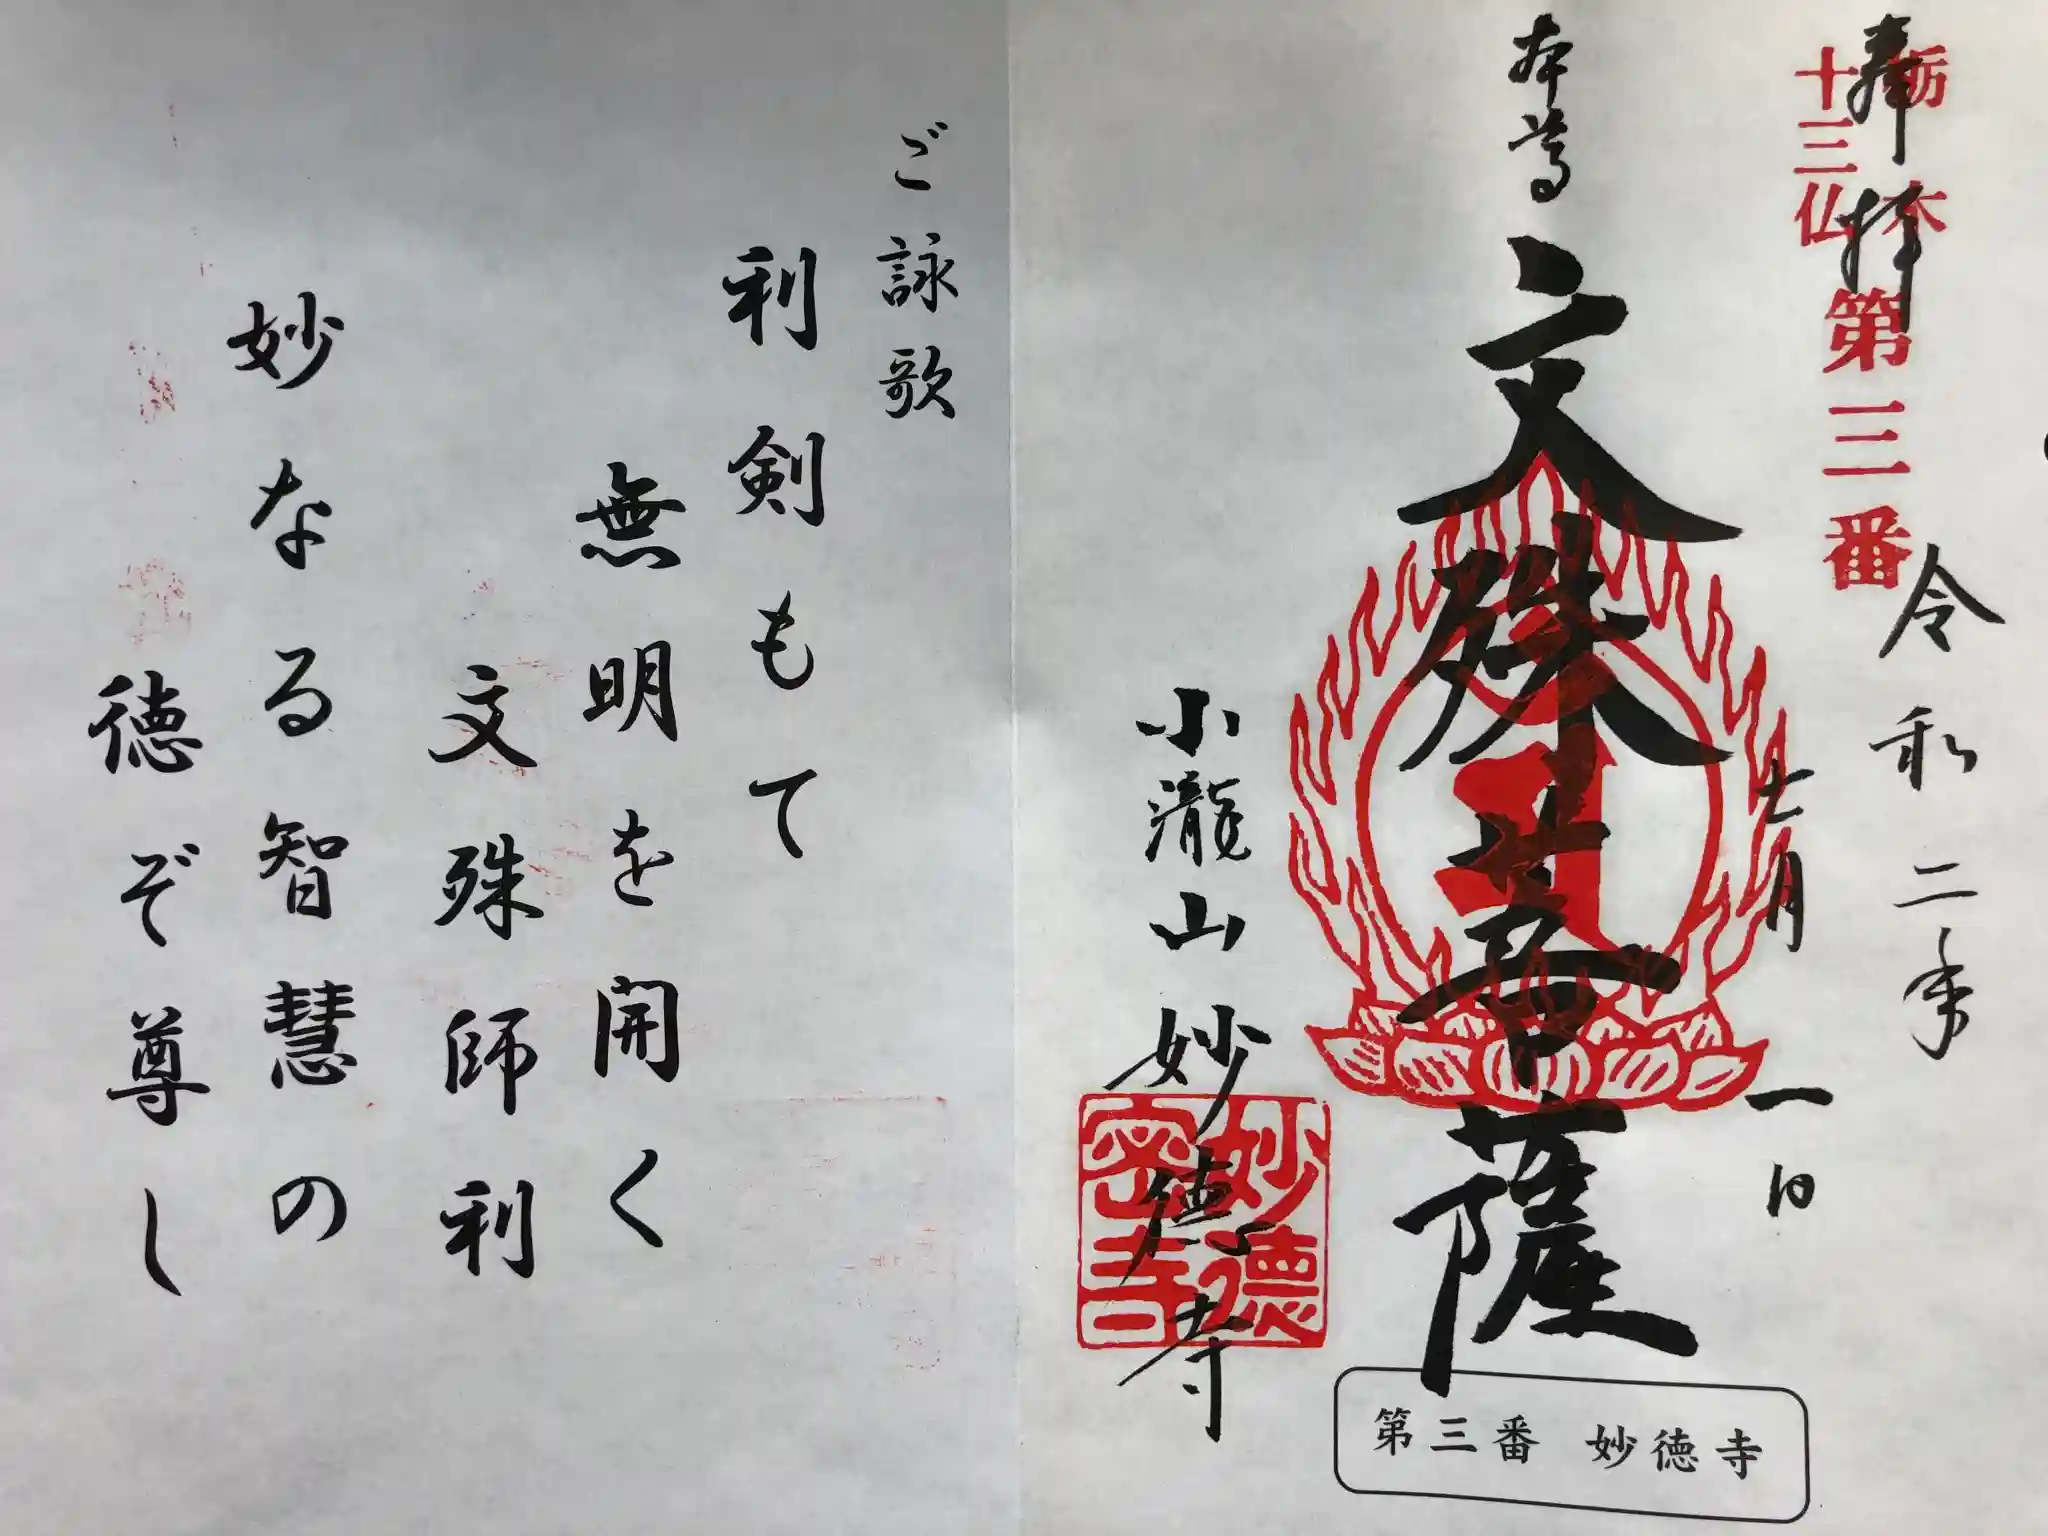 奉拝
栃木
十三仏
第三番
令和二年
七月一日
本尊
文殊菩薩
小瀧山 妙徳寺
妙徳
密寺
印
第三番 妙徳寺
ご詠歌
利剣もて
無明を開く
文殊師利
妙なる智慧の
徳ぞ尊し